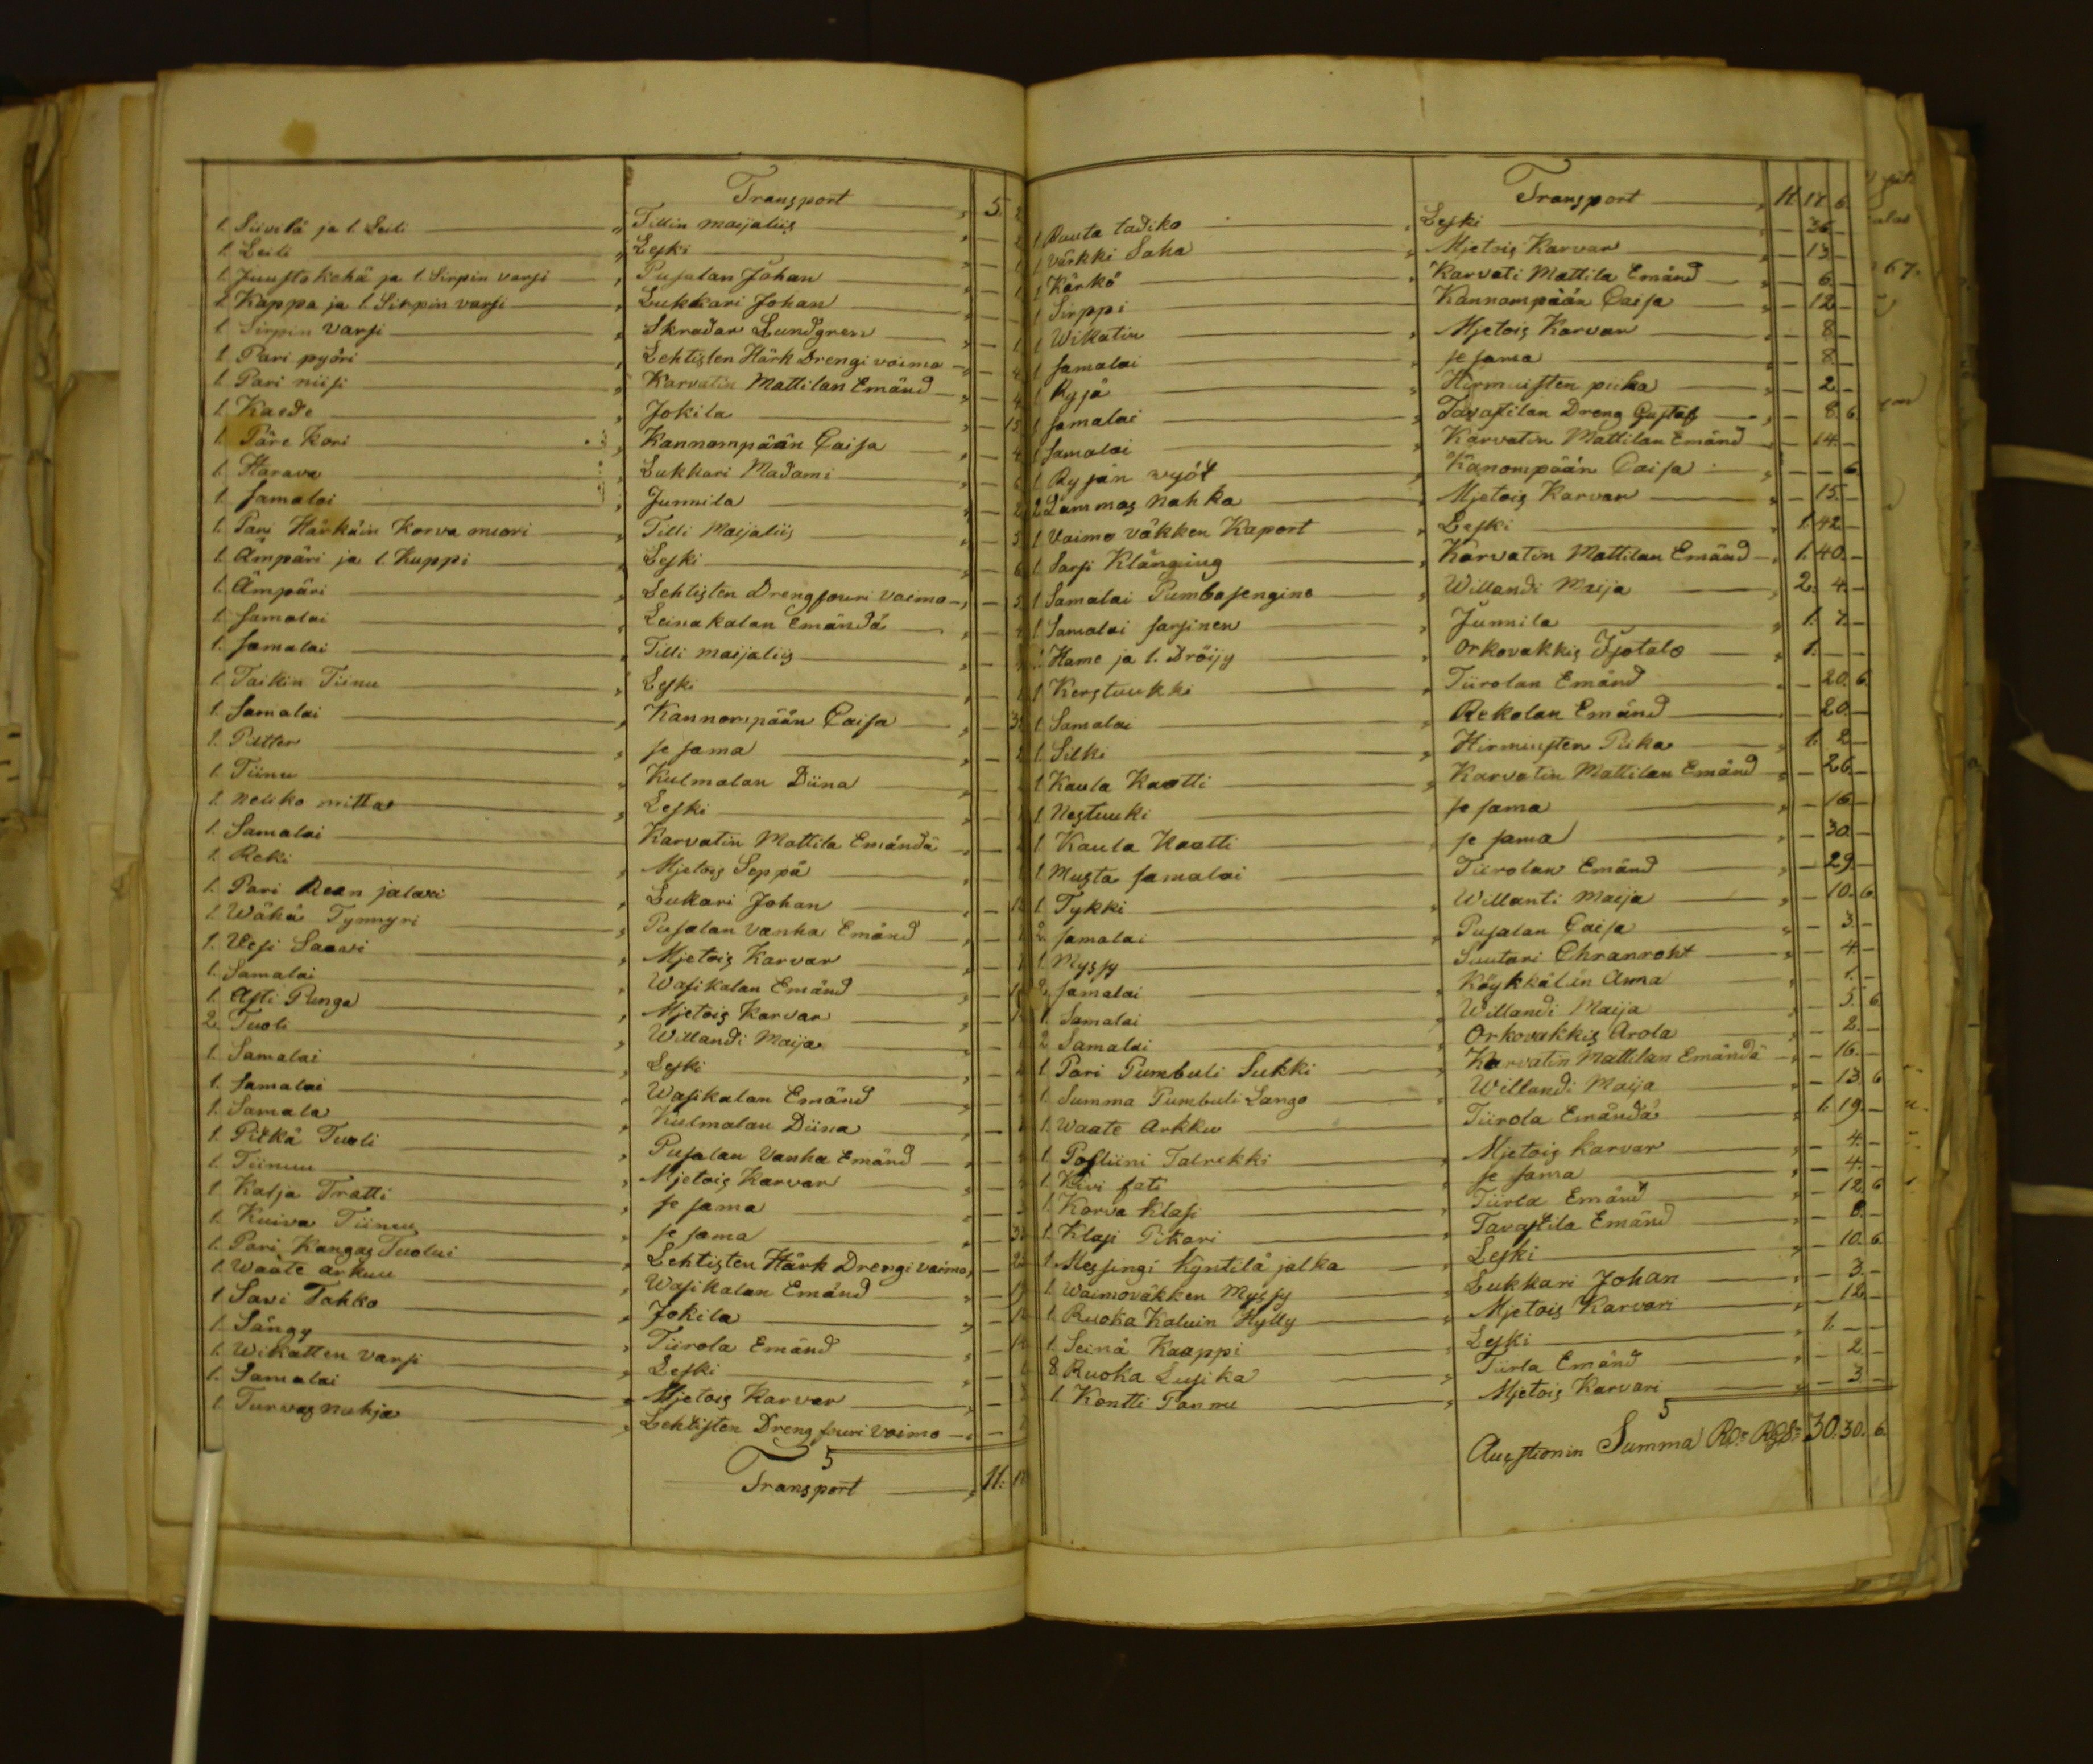 Transport 5.
1. Siivilä ja 1. Leili Tillin maijaliis
1. Leili Leski
1. Juusto kehä ja 1. Sirpin varsi Pusalan Johan
1. Kappa ja 1. Sirpin varsi Lukkari Johan
1. Sirpin varsi Skradar Lundgren
1. Pari pyöri Lehtisten Härk Drengi vaimo
1. Pari niisi Karvatin Mattilan Emänd
1. Kaede Jokila
1. Päre Kori Kannompään Caisa
1. Harava Lukkari Madami
1. samalai Junnila
1. Pari Härkäin Korva muori Tilli Maijaliis
1. Ämpäri ja 1. Kuppi Leski
1. Ämpäri Lehtisten Dreng souri vaimo
1. samalai Leinakalan Emändä
1. samalai Tilli maijaliis
1. Taikin Tiinu Leski
1. Samalai Kannompään Caisa
1. Putter se sama
1. Tiinu Kulmalan Diina
1. neliko mitta Leski
1. Samalai Karvatin Mattila Emändä
1. Reki Mjetois Seppä
1. Pari Reen jalaxi Lukari Johan
1. Wähä Tynnyri Pusalan vanha Emänd
1. Vesi Saavi Mjetois Karvar
1. Samalai Wasikalan Emänd
1. Asti Punga Mjetois Karvar
2. Tuoli Willandi Maija
1. Samalai Leski
1. samalai Wasikalan Emänd
1. Samala Kulmalan Diina
1. Pitkä Tuoli Pusalan Vanha Emänd
1. Tiinuu Mjetois Karvar
1. Kalja Tratti se sama
1. Kuiva Tiinuu se sama
1. Pari Kangas Tuolui Lehtisten Härk Drengi vaimo
1. Waate arkuu Wasikalan Emänd
1. Savi Tahko Jokila
1. Sängy Tiirola Emänd
1. Wikatten varsi Leski
1. Samalai Mjetois Karvar
1. Turvas nuhja Lehtisten Dreng souri vaimo
Transport 11.
Transport 11. 17. 6.
1. Rauta tadiko Leski 36.
1. Värkki Saha Mjetois Karvar 13.
1. Kärkö Karvati Mattila Emänd 6.
1. Sirppi Kannompään Caisa 12.
1. Wikatin Mjetois Karvar 8.
1. samalai se sama 8.
1. Ryjä Hirmuisten piika 2.
1. samalai Tavastilan Dreng Gustaf 8. 6
1. Samalai Karvatin Mattilan Emänd 14.
1. Ryjän wyöt Känompään Caisa 6
2. Lammas Nahka Mjetois Karvar 15.
1. Vaimo väkken Kaport Leski 1. 42
1. Sarsi Klänging Karvatin Mattilan Emänd 1. 40.
1. Samalai Pumbasengine Willandi Maija 2. 4.
1. Samalai sarsinen Junnila 1. 7.
1. Hame ja 1. Dröijy Orkovakkis Isotalo 1.
1. Kerstuukki Tiirolan Emänd 20. 6.
1. Samalai Rekolan Emänd 20.
1. Silki Hirmuisten Piika 1. 2
1. Kaula Kaatti Karvatin Mattilan Emänd 26.
1. Nestuuki se sama 16.
1. Kaula Kaatti se sama 30.
1. Musta samalai Tiirolan Emänd 29.
1. Tykki Willanti Maija 10. 6
2. samalai Pusalan Caisa 3.
1. Myssy Suutari Chranroht 4.
2. samalai Köykkälin Anna
1. Samalai Willandi Maija 5. 6
2. Samalai Orkovakkis Arola 2.
1. Pari Pumbuli Sukki Karvatin Mattilan Emändä 16.
1. Summa Pumbuli Lango Willandi Maija 13. 6
1. Waate Arkku Tiirola Emändä 1. 19.
1. Posliini Talrekki Mjetois Karvar 4.
1. Kivi fati se sama 4.
1. Korva Klasi Tiirla Emänd 12. 6
1. Klasi Pikari Tavastila Emänd 8.
1. Messingi Kyntilä jalka Leski 10. 6.
1. Waimoväkken Myssy Lukkari Johan 3.
1. Ruoka Kaluin Hylly Mjetois Karvari 12.
1. Seinä Kaappi Leski 1.
8. Ruoka Lusika Tiirla Emänd 2.
1. Kontti Pannu Mjetois Karvari 3.
Auctionin Summa 30. 30. 6.
67.